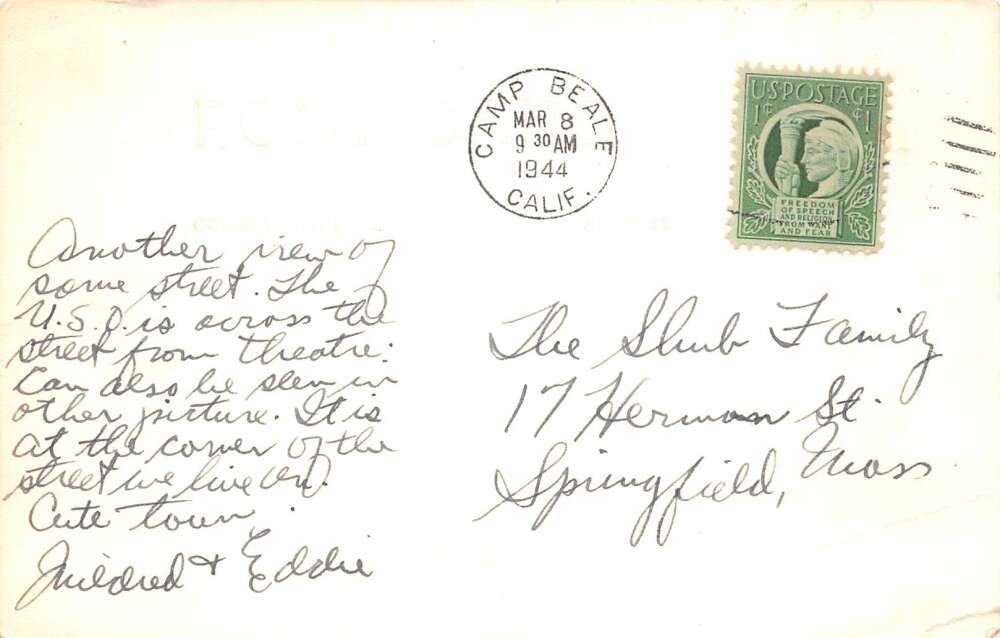 CAMP BEALE
MAR 8
9 30 AM
1944
CALIF.
U.S. POSTAGE
1¢ ¢1
FREEDOM
OF SPEECH
AND RELIGION
FROM WANT
AND FEAR
Another view of
same street. The
U.S.O. is across the
street from theatre.
Can also be seen in
other picture. It is
at the corner of the
street we live on.
Cute town.
Mildred & Eddie
The Shub Family
17 Herman St.
Springfield, Mass